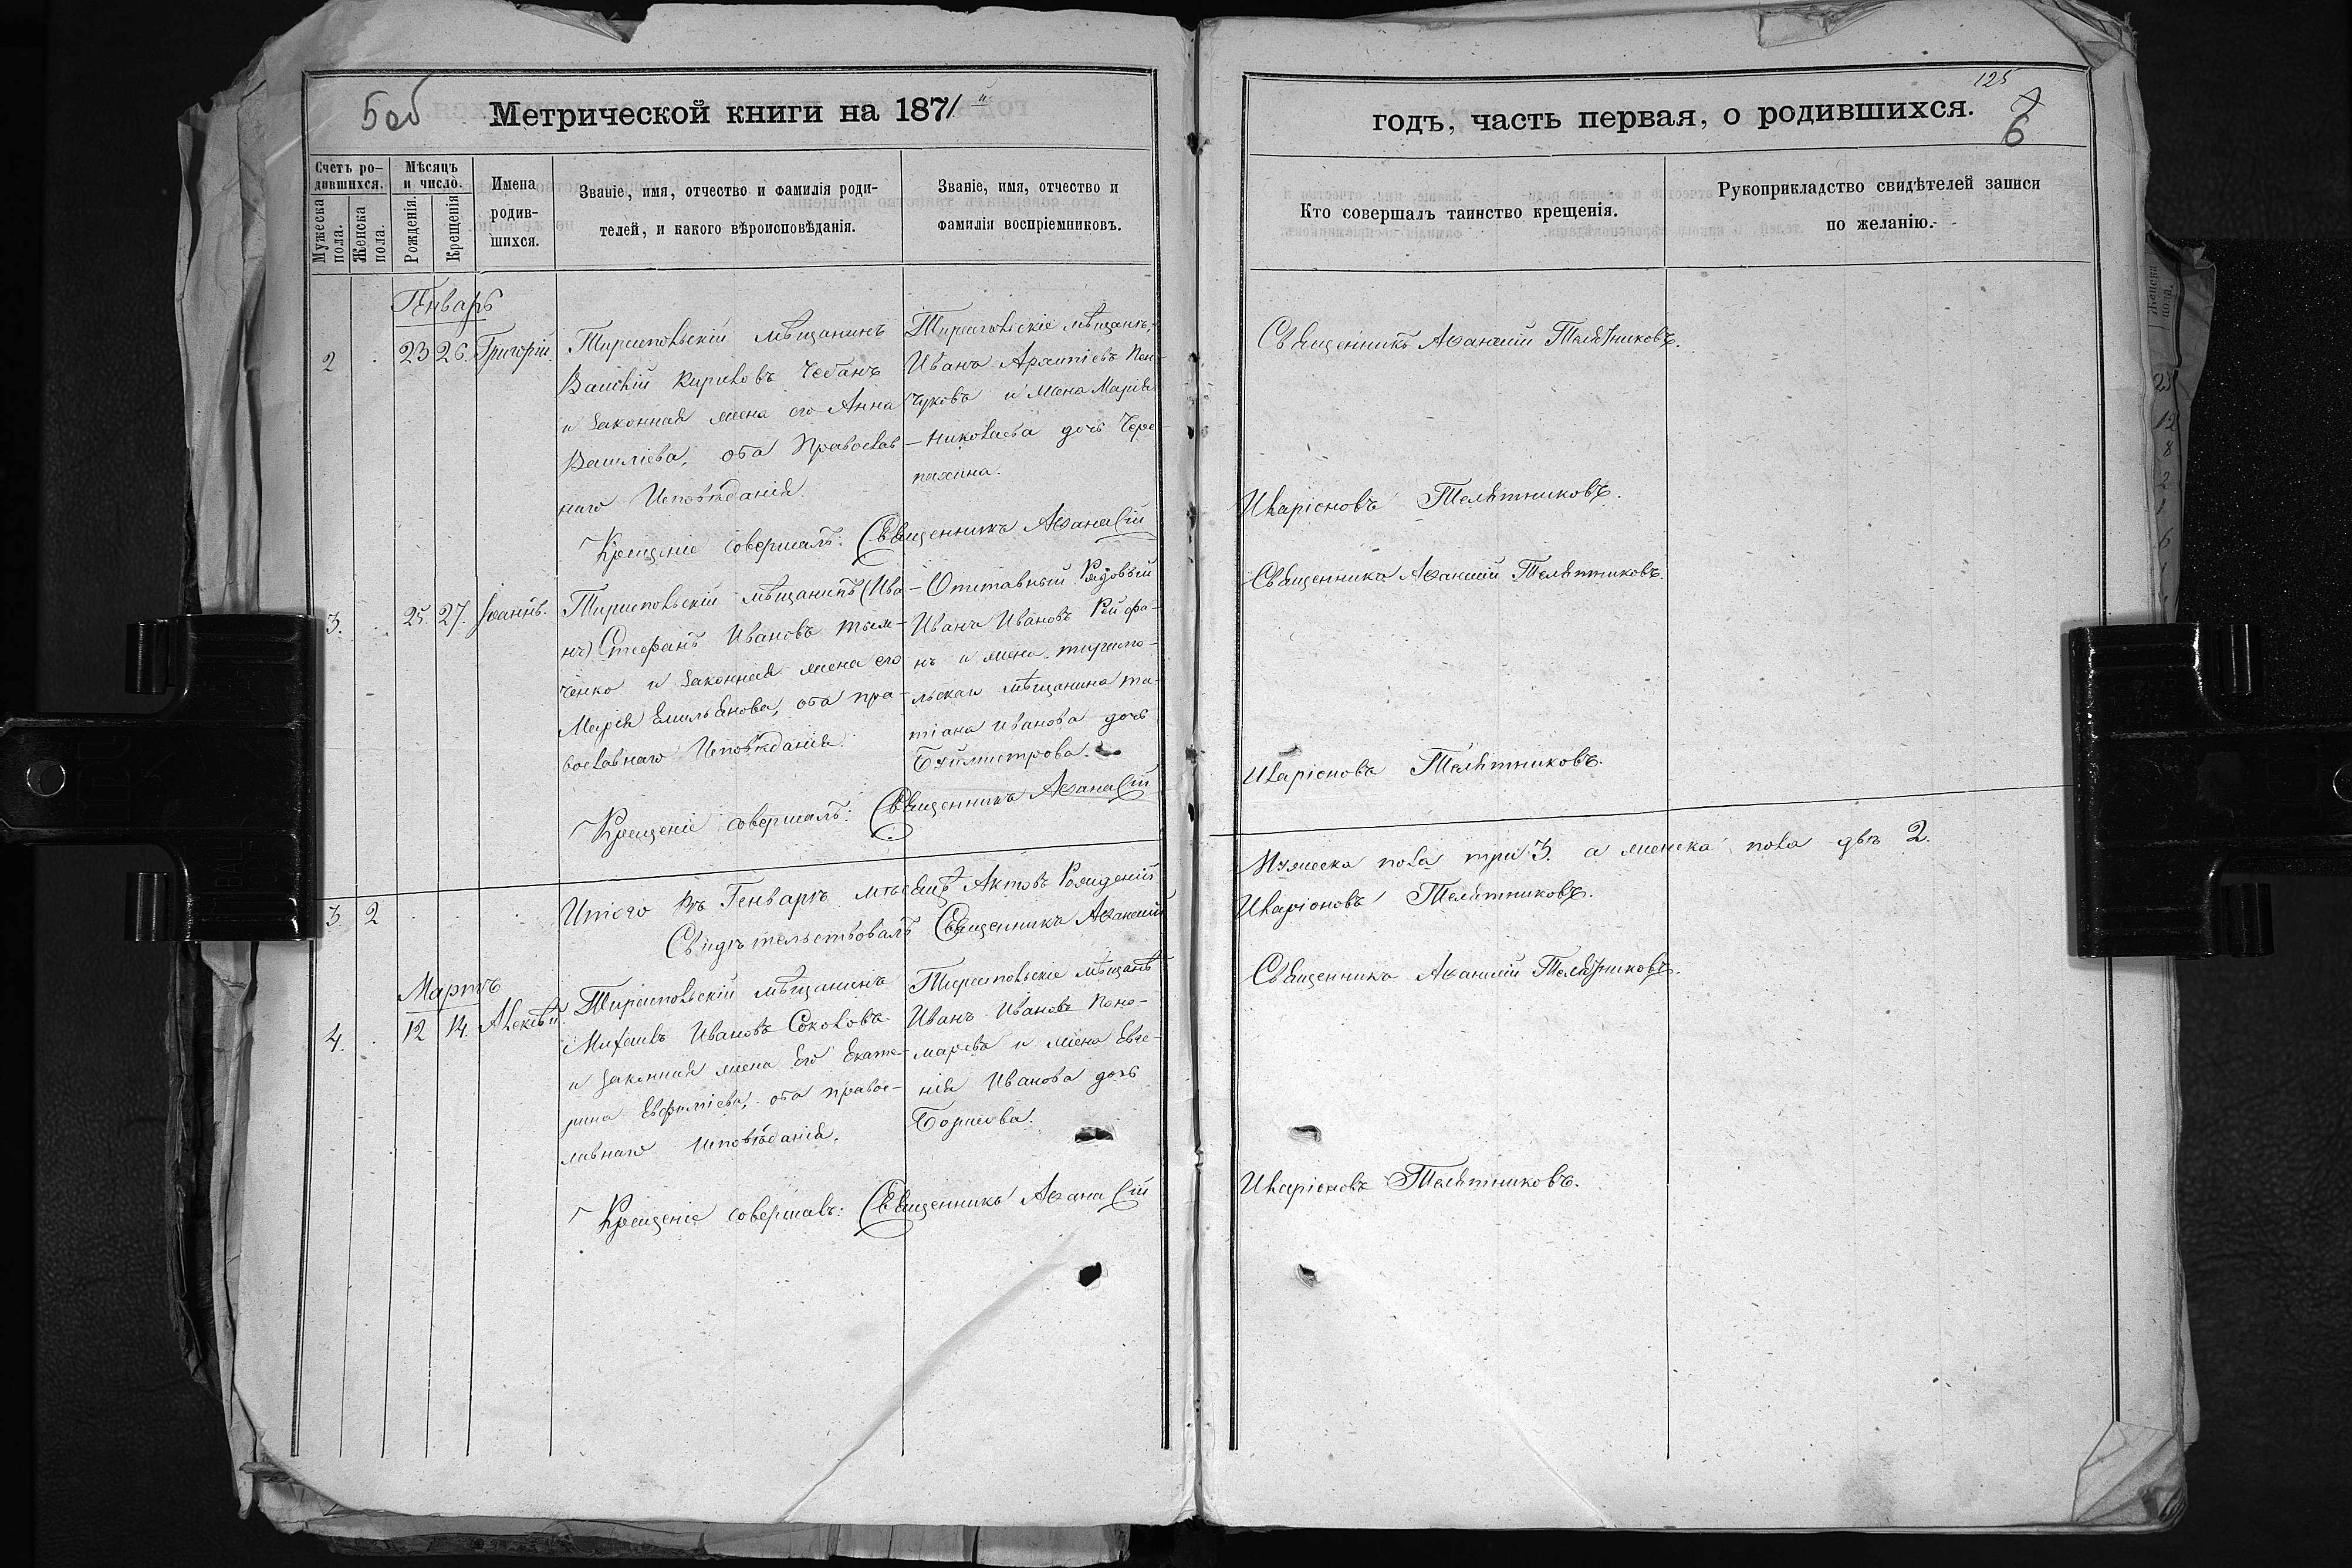 5об
Метрической книги на 1871й
Счетъ ро-
дившихся.
Мужеска пола.
Женска пола.
Мѣсяцъ
и число.
Рожденія.
Крещенія
Имена
родив-
шихся.
Званіе, имя, отчество и фамилія роди-
телей, и какого вѣроисповѣданія.
Званіе, имя, отчество и
фамилія воспріемниковъ.
Генварь
2 23 26. Григорій.
Тираспольскій мѣщанинъ
Василій Кириловъ Чебанъ
и законная жена его Анна
Василіева, оба Православ
наго Исповѣданія.
Тираспольскіе мѣщане,
Иванъ Архипіевъ Пон-
чуковъ и жена Марія
Николаева дочь Чере-
пахина.
Крещеніе совершалъ: Священникъ Афанасій
3. 25. 27. Іоаннъ.
Тираспольскій мѣщанинъ (Ива
нъ) Стефанъ Ивановъ Тым-
ченко и законная жена его
Марія Емильянова, оба пра-
вославнаго Исповѣданія.
Отставный Рядовый
Иванъ Ивановъ
нъ и жена тираспо-
льская мѣщанина та-
тіана Иванова дочь
Крещеніе совершалъ: Священникъ Афанасій
3. 2
Итого Въ Генварѣ мѣсяцѣ Актовъ Рожденій
Свидѣтельствовалъ Священникъ Афанасій
Мартъ
4. 12 14. Алексѣй.
Тираспольскій мѣщанинъ
Михаилъ Ивановъ Соколовъ
и законная жена Его Екате-
рина Евфиміева, оба правос-
лавнаго Исповѣданія.
Тираспольскіе мѣщане
Иванъ Ивановъ Поно-
маревъ и жена Евге-
нія Иванова дочь
Крещеніе совершалъ: Священникъ Афанасій
125
7
6
годъ, часть первая, о родившихся.
Кто совершалъ таинство крещенія.
Рукоприкладство свидѣтелей записи
по желанію.
Священникъ Афанасій Телятниковъ.
Иларіоновъ Телятниковъ.
Священникъ Афанасій Телятниковъ.
Иларіоновъ Телятниковъ.
Мужеска пола три 3. а женска пола двѣ 2.
Иларіоновъ Телятниковъ.
Священникъ Афанасій Телятниковъ.
Иларіоновъ Телятниковъ.